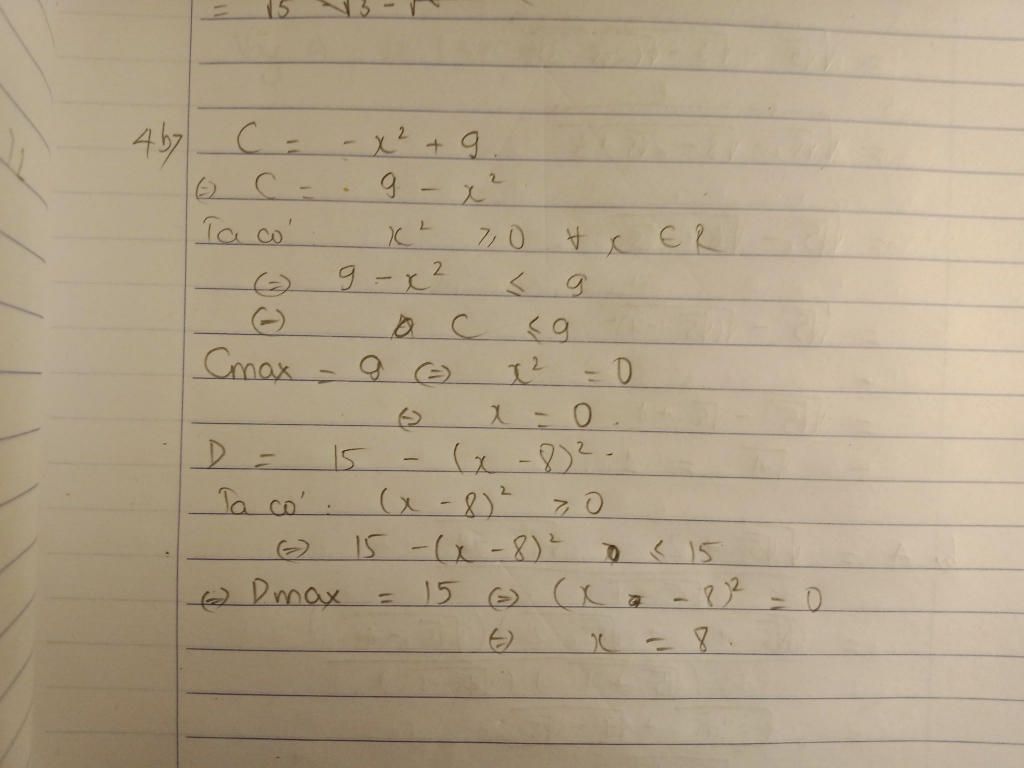 = √5 √3 -
4b, C = - x² + 9.
⇔ C = 9 - x²
Ta có x² ≥ 0 ∀ x ∈ R
⇔ 9 - x² ≤ 9
⇔ C ≤ 9
Cmax = 9 ⇔ x² = 0
⇔ x = 0.
D = 15 - (x - 8)².
Ta có: (x - 8)² ≥ 0
⇔ 15 - (x - 8)² ≤ 15
⇔ Dmax = 15 ⇔ (x - 8)² = 0
⇔ x = 8.